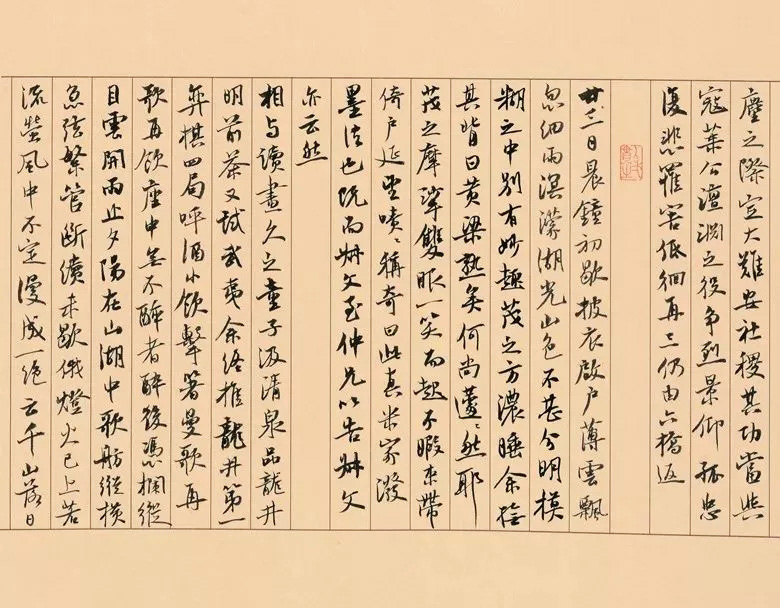 塵之際定大難安社稷其功當與
寇萊公澶淵之役爭烈景仰孤忠
復悲罹害低徊再三仍由六橋返
廿三日晨鐘初歇披衣啟戶薄雲飄
忽細雨溟濛湖光山色不甚分明模
糊之中別有妙趣茂之方濃睡余撼
其背曰黃粱熟矣何尚蘧〻然耶
茂之摩挲雙眼一笑而起不暇束帶
倚戶延望嘖〻稱奇曰此真米家潑
墨法也既而叔文至仲兄以告叔文
亦云然
相与讀畫久之童子汲清泉品龍井
明前茶又試武夷余終推龍井第一
弈棋四局呼酒小飲擊箸曼歌再
歌再飲座中無不醉者醉後憑欄縱
目雲開雨止夕陽在山湖中歌舫縱橫
急弦繁管斷續未歇俄燈火已上若
流螢風中不定漫成一絕云千山落日